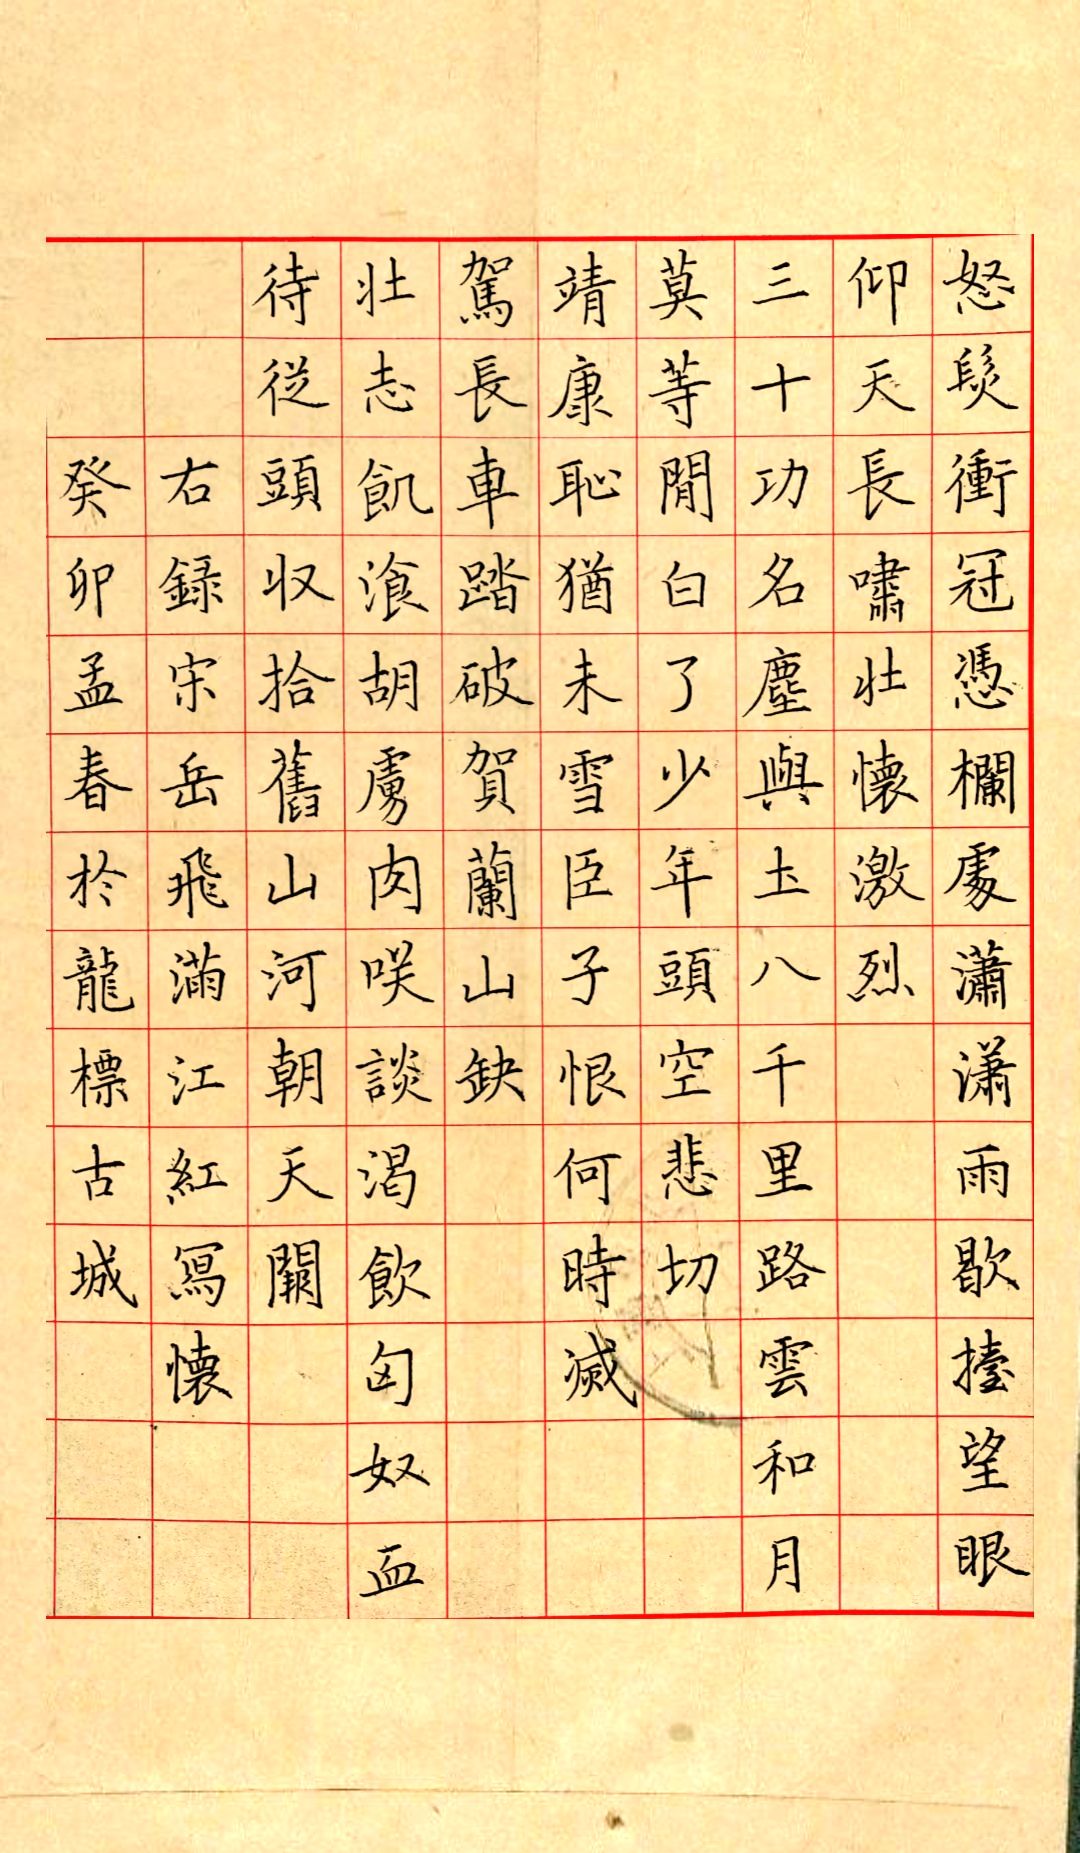 怒髮衝冠憑欄處瀟瀟雨歇擡望眼
仰天長嘯壯懷激烈
三十功名塵與土八千里路雲和月
莫等閒白了少年頭空悲切
靖康恥猶未雪臣子恨何時滅
駕長車踏破賀蘭山缺
壯志飢飡胡虜肉咲談渴飲匈奴血
待從頭收拾舊山河朝天闕
右錄宋岳飛滿江紅寫懷
癸卯孟春於龍標古城